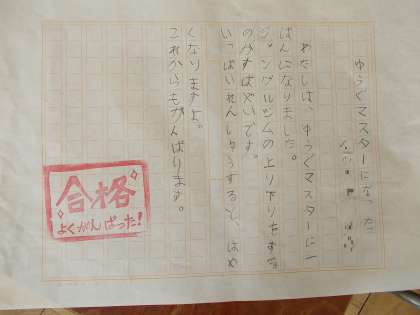 ゆうぐマスターになった
わたしは、ゆうぐマスターに一
ばんになりました。
ジャングルジムの上り下りをする
のがすばやいです。
いっぱいれんしゅうすると、はや
くなりますよ。
これからもがんばります。
合格
よくがんばった!